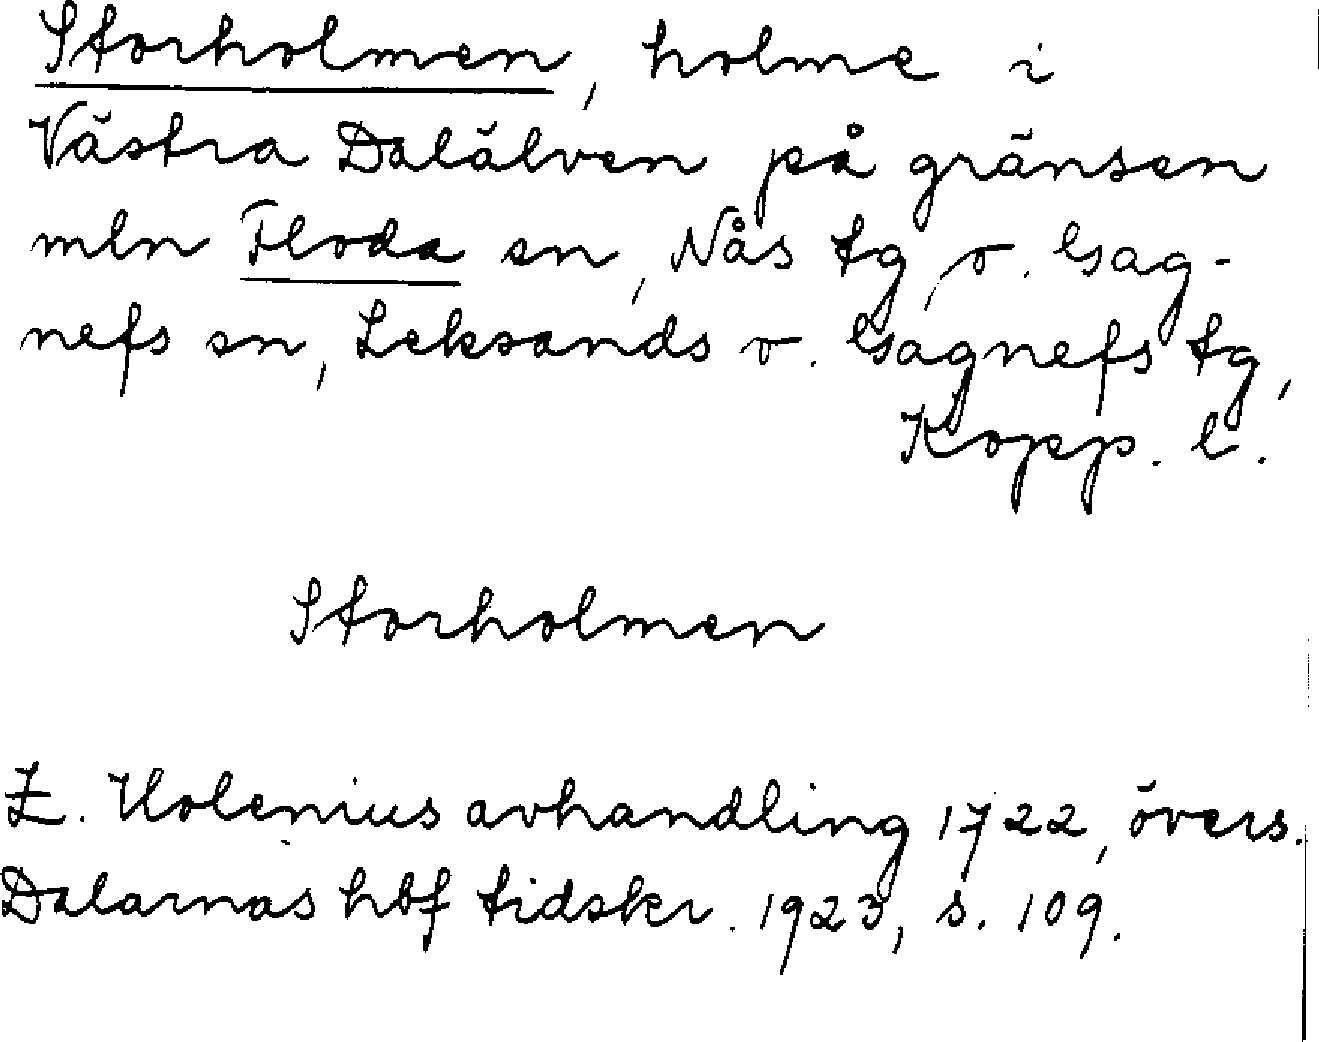 Storholmen, holme i
Västra Dalälven på gränsen
mln Floda sn, Nås tg, o. Gag-
nefs sn, Leksands o. Gagnefs tg,
Kopp. l.
Storholmen
Z. Holenius avhandling 1722, övers.
Dalarnas hbf tidskr. 1923, s. 109.